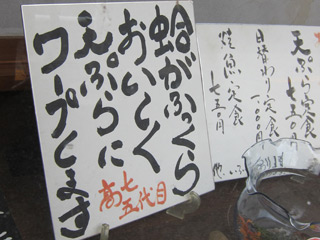 蛤がふっくら
おいしく
天ぷらに
ワープします
高七
五代目
天ぷら定食
七五〇
日替わり定食
一、〇〇〇円
焼魚定食
七五〇円